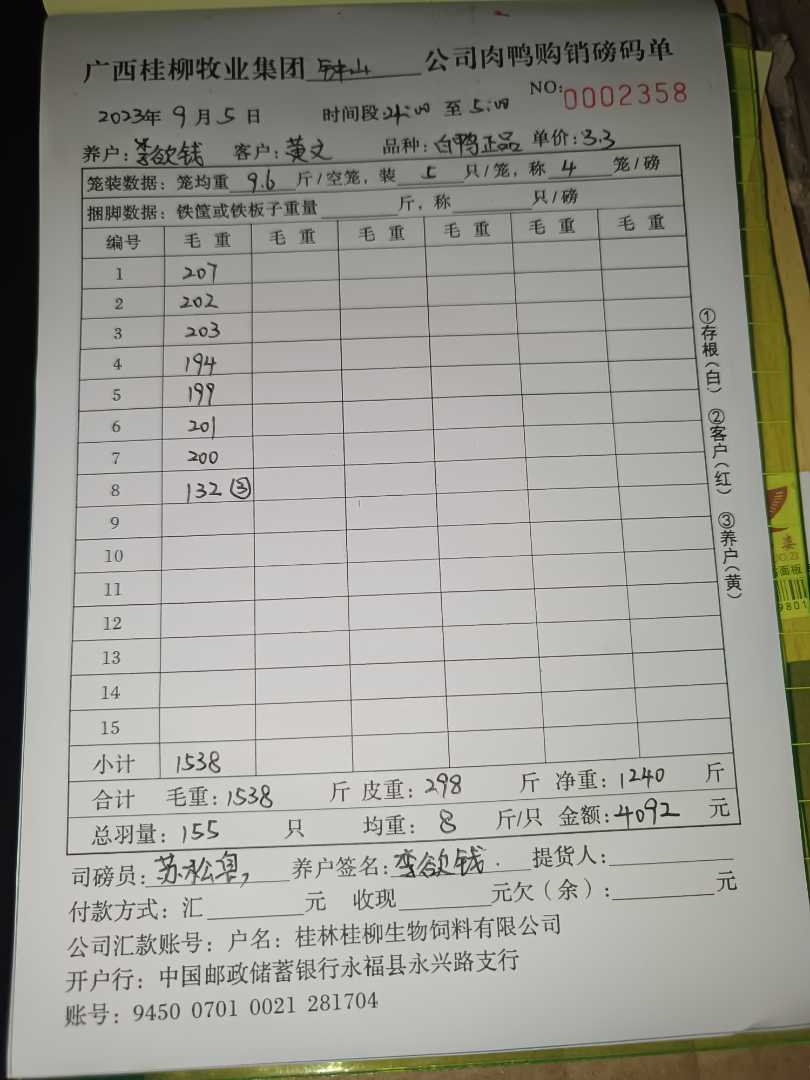 广西桂柳牧业集团钟山公司肉鸭购销磅码单
NO:0002358
2023年9月5日 时间段24:00至5:00
养户:李欲钱 客户:黄文 品种:白鸭正品 单价:3.3
笼装数据:笼均重 9.6 斤/空笼,装 5 只/笼,称 4 笼/磅
捆脚数据:铁筐或铁板子重量 斤,称 只/磅
编号 毛重 毛重 毛重 毛重 毛重 毛重
1 207
2 202
3 203
4 194
5 199
6 201
7 200
8 132 ③
9
10
11
12
13
14
15
小计 1538
合计 毛重:1538 斤 皮重:298 斤 净重:1240 斤
总羽量:155 只 均重:8 斤/只 金额:4092 元
司磅员:苏松 养户签名:李欲钱 提货人:
付款方式:汇 元 收现 元欠(余): 元
公司汇款账号:户名:桂林桂柳生物饲料有限公司
开户行:中国邮政储蓄银行永福县永兴路支行
账号:9450 0701 0021 281704
①存根(白) ②客户(红) ③养户(黄)